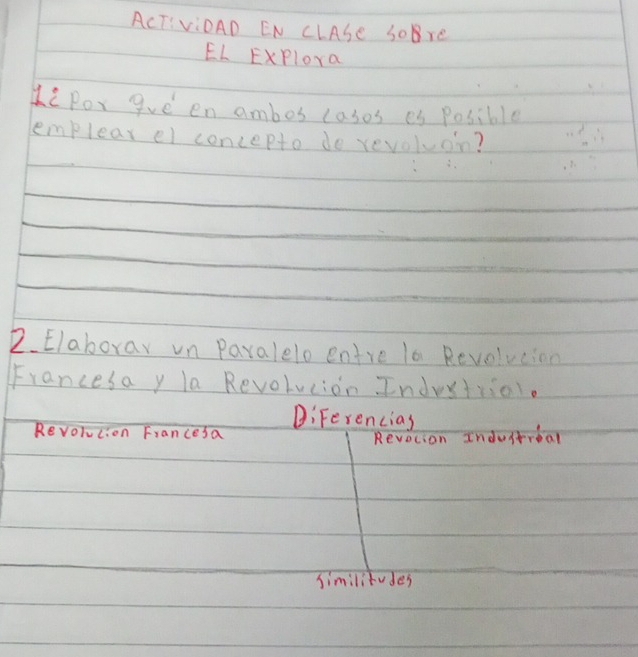 ACTiViDAD EN CLASE SOBre
EL EXPlora
1¿Por qué en ambos casos es Posible
emplear el concepto de revoluón?
2. Elaborar un Paralelo entre la Revolucion
Francesa y la Revolución Industrial.
Diferencias
Revolucion Francesa
Revocion Industrial
Similitudes